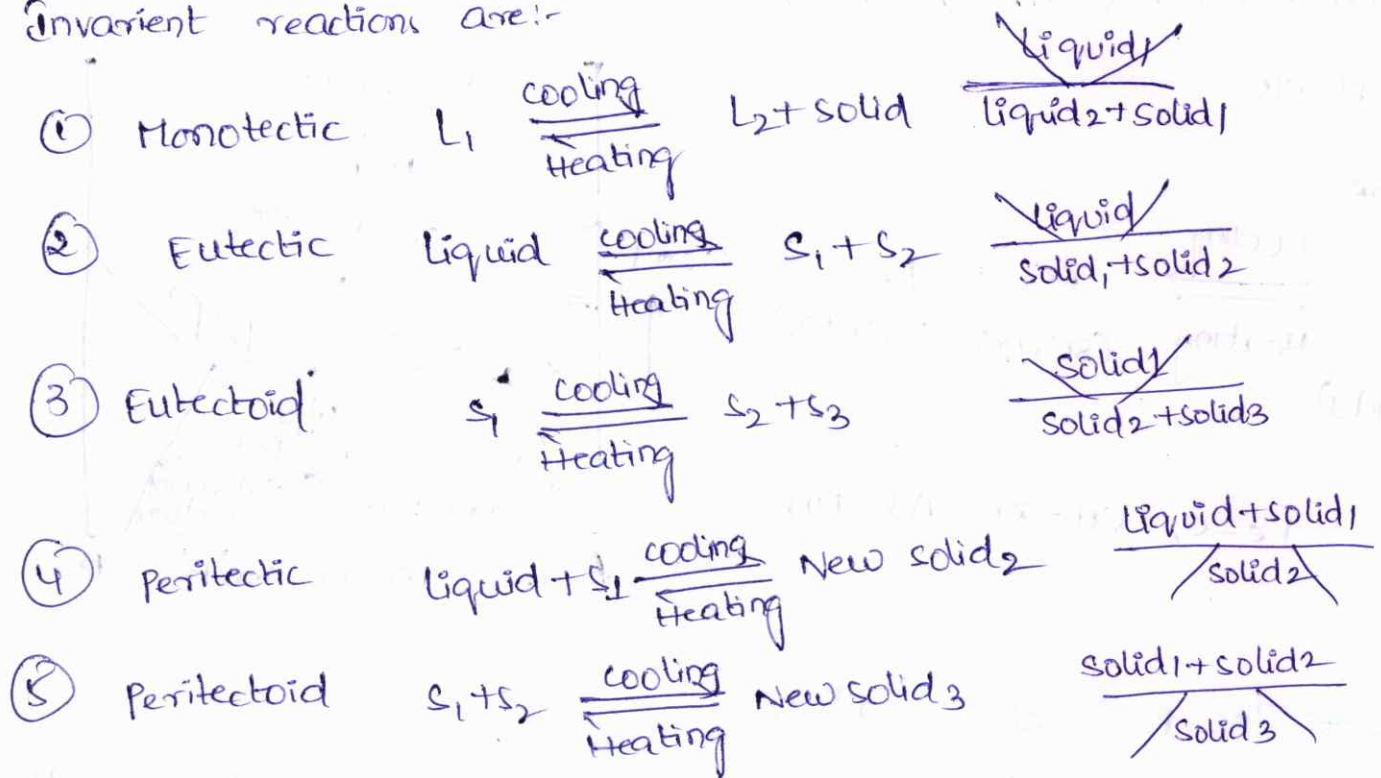 Invarient reactions are:-
① Monotectic L₁ cooling ⇌ Heating L₂ + solid Liquid1 / liquid2 + solid1
② Eutectic liquid cooling ⇌ Heating S₁ + S₂ Liquid / Solid1 + solid2
③ Eutectoid S₁ cooling ⇌ Heating S₂ + S₃ Solid1 / Solid2 + solid3
④ Peritectic liquid + S1 cooling ⇌ Heating New solid2 Liquid + solid1 / Solid2
⑤ Peritectoid S₁ + S₂ cooling ⇌ Heating New solid3 Solid1 + solid2 / Solid3